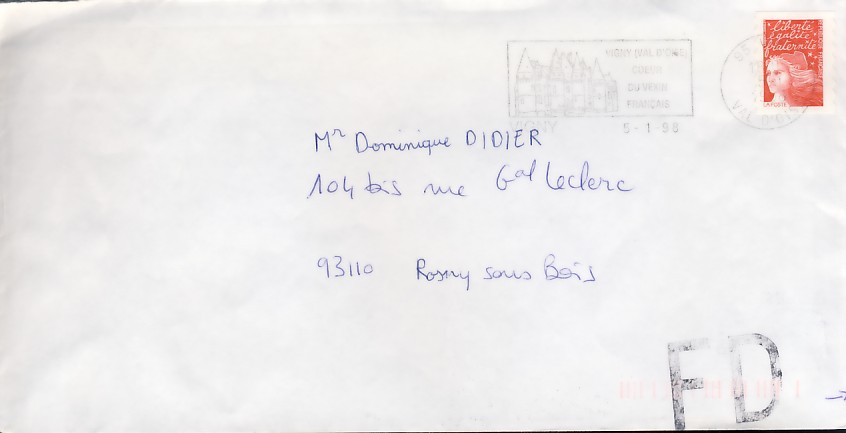 liberté
égalité
fraternité
LA POSTE
VIGNY (VAL D'OISE)
COEUR
DU VEXIN
FRANÇAIS
VIGNY
5-1-98
95
VAL D'OISE
Mr Dominique DIDIER
104 bis rue Gal Leclerc
93110 Rosny sous Bois
FD